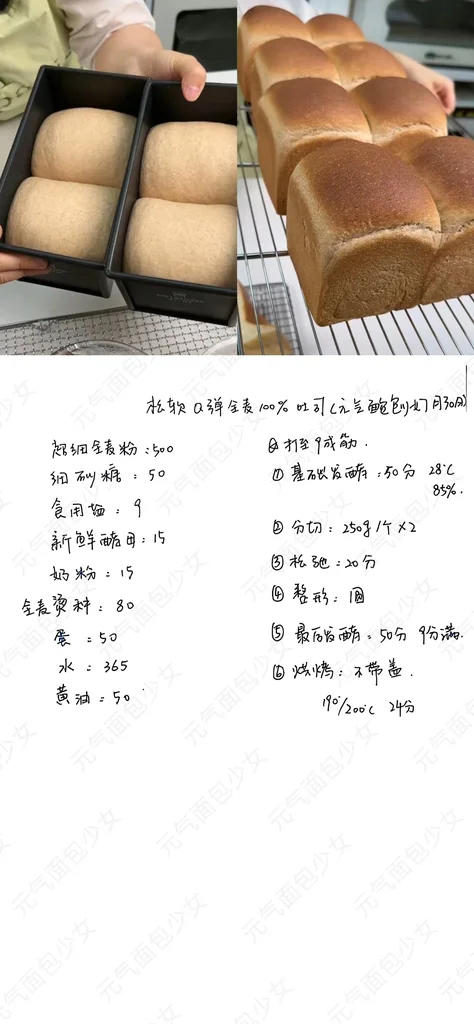 松软Q弹全麦100%吐司(元气面包
超细全麦粉:500
细砂糖:50
食用盐:9
新鲜酵母:15
奶粉:15
全麦烫种:80
蛋:50
水:365
黄油:50
打至9成筋.
① 基础发酵:50分 28℃
85%.
② 分切:250g/个×2
③ 松弛:20分
④ 整形:圆
⑤ 最后发酵:50分 9分满.
⑥ 烘烤:不带盖.
190°/200℃ 24分
元气面包少女